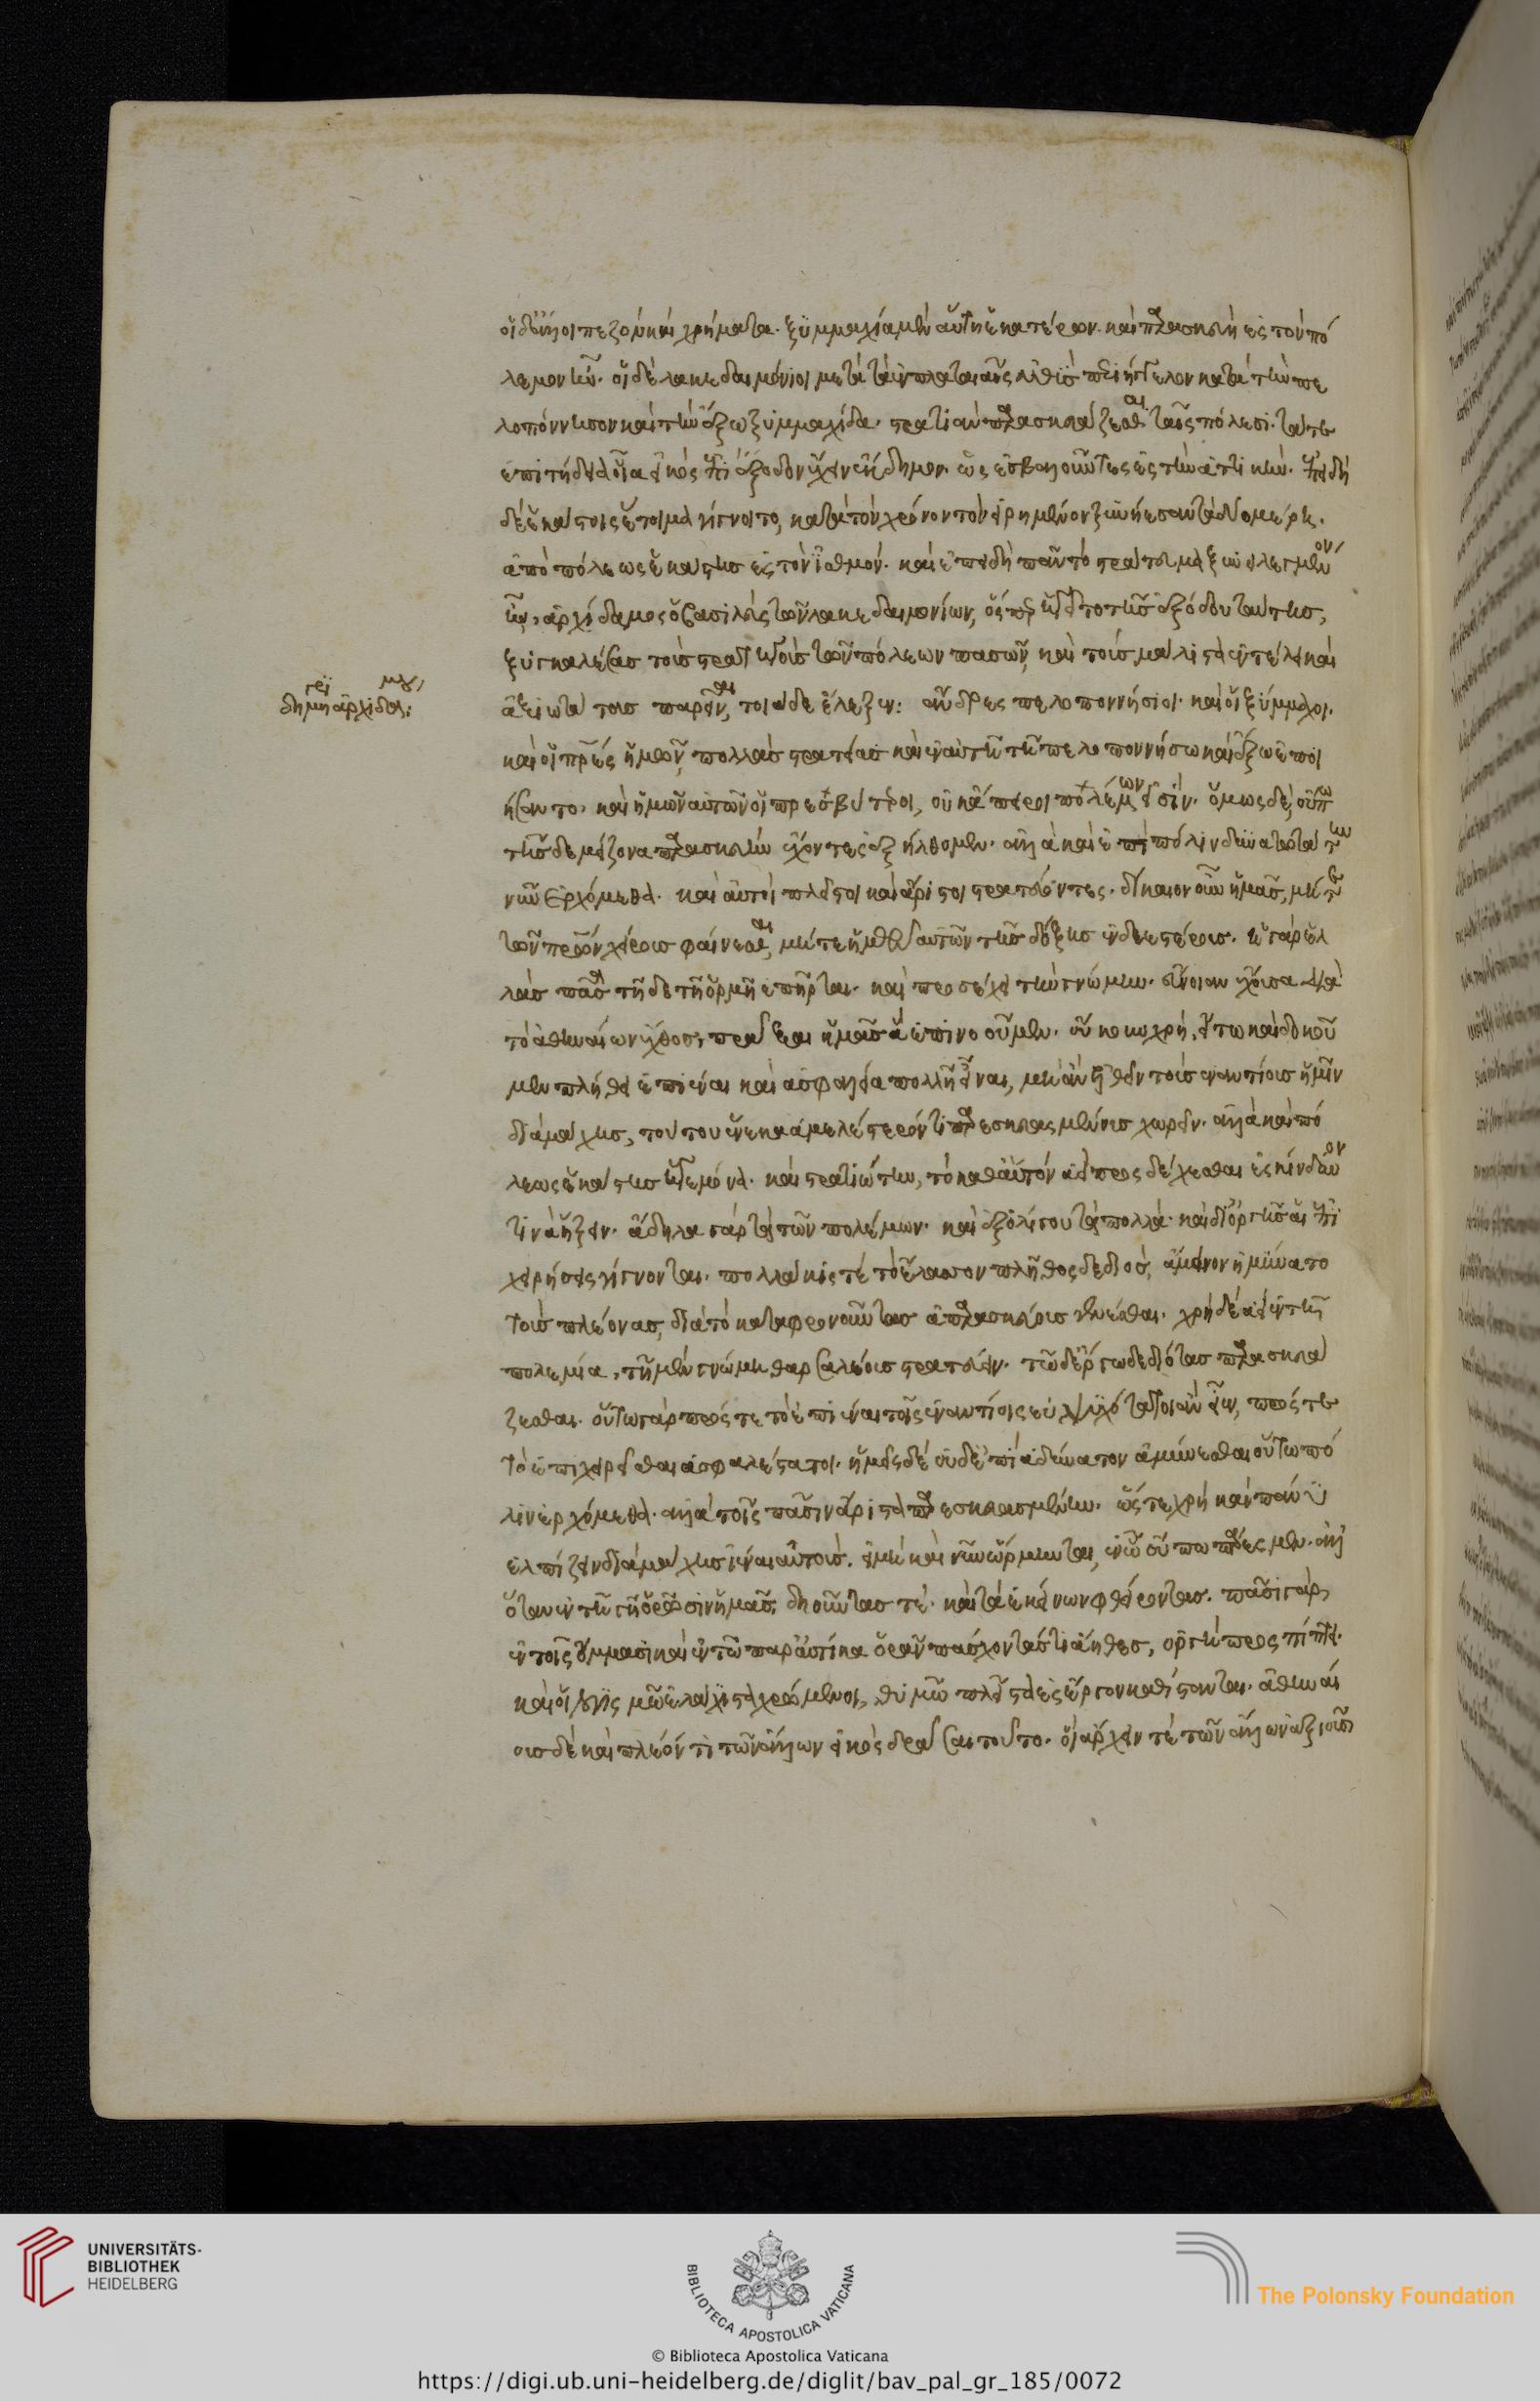 οἱ δ' ἄλλοι πεζὸν καὶ χρήματα. ξυμμαχία μὲν αὕτη ἑκατέρων. καὶ παρασκευὴ ἐς τὸν πό
λεμον ἦν. οἱ δὲ λακεδαιμόνιοι μετὰ τὰ ἐν πλαταιαῖς εὐθὺς περιήγγελον κατὰ τὴν πε
λοπόννησον καὶ τὴν ἔξω ξυμμαχίδα. στρατιὰν παρασκευάζεσθαι ταῖς πόλεσι. τά τε
ἐπιτήδεια οἷα εἰκὸς ἐπὶ ἔξοδον ἔχειν ἔκδημον. ὡς ἐσβαλοῦντες ἐς τὴν ἀττικήν. ἐπειδὴ
δὲ ἑκάστοις ἑτοῖμα γίγνοιτο, κατὰ τὸν χρόνον τὸν εἰρημένον ξυνῄεσαν τὰ δύο μέρη.
ἀπὸ πόλεως ἑκάστης ἐς τὸν ἰσθμόν. καὶ ἐπειδὴ πᾶν τὸ στράτευμα ξυνειλεγμένον
ἦν, ἀρχίδαμος ὁ βασιλεὺς τῶν λακεδαιμονίων, ὅσπερ ἡγεῖτο τῆς ἐξόδου ταύτης,
ξυγκαλέσας τοὺς στρατηγοὺς τῶν πόλεων πασῶν, καὶ τοὺς μάλιστα ἐν τέλει καὶ
δημηγορία ἀρχιδάμου:
ἀξιωτάτους παρεῖναι, τοιάδε ἔλεξεν: ἄνδρες πελοποννήσιοι. καὶ οἱ ξύμμαχοι.
καὶ οἱ πατέρες ἡμῶν, πολλὰς στρατείας καὶ ἐν αὐτῇ τῇ πελοποννήσω καὶ ἔξω ἐποι
ήσαντο. καὶ ἡμῶν αὐτῶν οἱ πρεσβύτεροι, οὐκ ἄπειροι πολέμων εἰσίν. ὅμως δὲ, οὔπω
τῆσδε μείζονα παρασκευὴν ἔχοντες ἐξήλθομεν. ἀλλὰ καὶ ἐπὶ πόλιν δυνατωτάτην
νῦν ἐρχόμεθα. καὶ αὐτοὶ πλεῖστοι καὶ ἄριστοι στρατεύοντες. δίκαιον οὖν ἡμᾶς, μήτε
τῶν πατέρων χείρους φαίνεσθαι, μήτε ἡμῶν αὐτῶν τῆς δόξης ἐνδεεστέρους. ἡ γὰρ ἑλ
λὰς πᾶσα τῇδε τῇ ὁρμῇ ἐπῆρται. καὶ προσέχει τὴν γνώμην. εὔνοιαν ἔχουσα διὰ
τὸ ἀθηναίων ἔχθος, πρᾶξαι ἡμᾶς ἃ ἐπινοοῦμεν. οὔκουν χρὴ, εἴ τω καὶ δοκοῦ
μεν πλήθει ἐπιέναι καὶ ἀσφάλεια πολλὴ εἶναι, μὴ ἂν ἐλθεῖν τοὺς ἐναντίους ἡμῖν
διὰ μάχης, τούτου ἕνεκα ἀμελέστερόν τι παρεσκευασμένους χωρεῖν. ἀλλὰ καὶ πό
λεως ἑκάστης ἡγεμόνα. καὶ στρατιώτην, τὸ καθ' αὑτὸν αἰεὶ προσδέχεσθαι ἐς κίνδυνον
τινὰ ἥξειν. ἄδηλα γὰρ τὰ τῶν πολέμων. καὶ ἐξ ὀλίγου τὰ πολλὰ. καὶ δι' ὀργῆς αἱ ἐπι
χειρήσεις γίγνονται. πολλάκις τὲ τὸ ἔλασσον πλῆθος δεδιὸς, ἄμεινον ἠμύνατο
τοὺς πλέονας, διὰ τὸ καταφρονοῦντας ἀπαρασκεύους γενέσθαι. χρὴ δὲ αἰεὶ ἐν τῇ
πολεμία, τῇ μὲν γνώμη θαρσαλέους στρατεύειν. τῶ δ' ἔργω δεδιότας παρασκευά
ζεσθαι. οὕτω γὰρ πρός τε τὸ ἐπιέναι τοῖς ἐναντίοις εὐψυχότατοι ἂν εἶεν, πρός τε
τὸ ἐπιχειρεῖσθαι ἀσφαλέστατοι. ἡμεῖς δὲ οὐδ' ἐπὶ ἀδύνατον ἀμύνεσθαι οὕτω πό
λιν ἐρχόμεθα. ἀλλὰ τοῖς πᾶσιν ἄριστα παρεσκευασμένην. ὥστε χρὴ καὶ πάνυ
ἐλπίζειν διὰ μάχης ἰέναι αὐτοὺς. εἰ μὴ καὶ νῦν ὥρμηνται, ἐν ᾧ οὔπω πάρεσμεν. ἀλλ'
ὅταν ἐν τῇ γῇ ὁρῶσιν ἡμᾶς, δηοῦντας τὲ. καὶ τὰ ἐκείνων φθείροντας. πᾶσι γὰρ,
ἐν τοῖς ὄμμασι καὶ ἐν τῶ παραυτίκα ὁρᾶν πάσχοντάς τι ἄηθες, ὀργὴ προσπίπτει.
καὶ οἱ λογισμῶ ἐλάχιστα χρώμενοι, θυμῶ πλεῖστα ἐς ἔργον καθίστανται. ἀθηναί
ους δὲ καὶ πλέον τὶ τῶν ἄλλων εἰκὸς δρᾶσαι τοῦτο. οἳ ἄρχειν τὲ τῶν ἄλλων ἀξιοῦσι
UNIVERSITÄTS-
BIBLIOTHEK
HEIDELBERG
BIBLIOTECA APOSTOLICA VATICANA
The Polonsky Foundation
© Biblioteca Apostolica Vaticana
https://digi.ub.uni-heidelberg.de/diglit/bav_pal_gr_185/0072